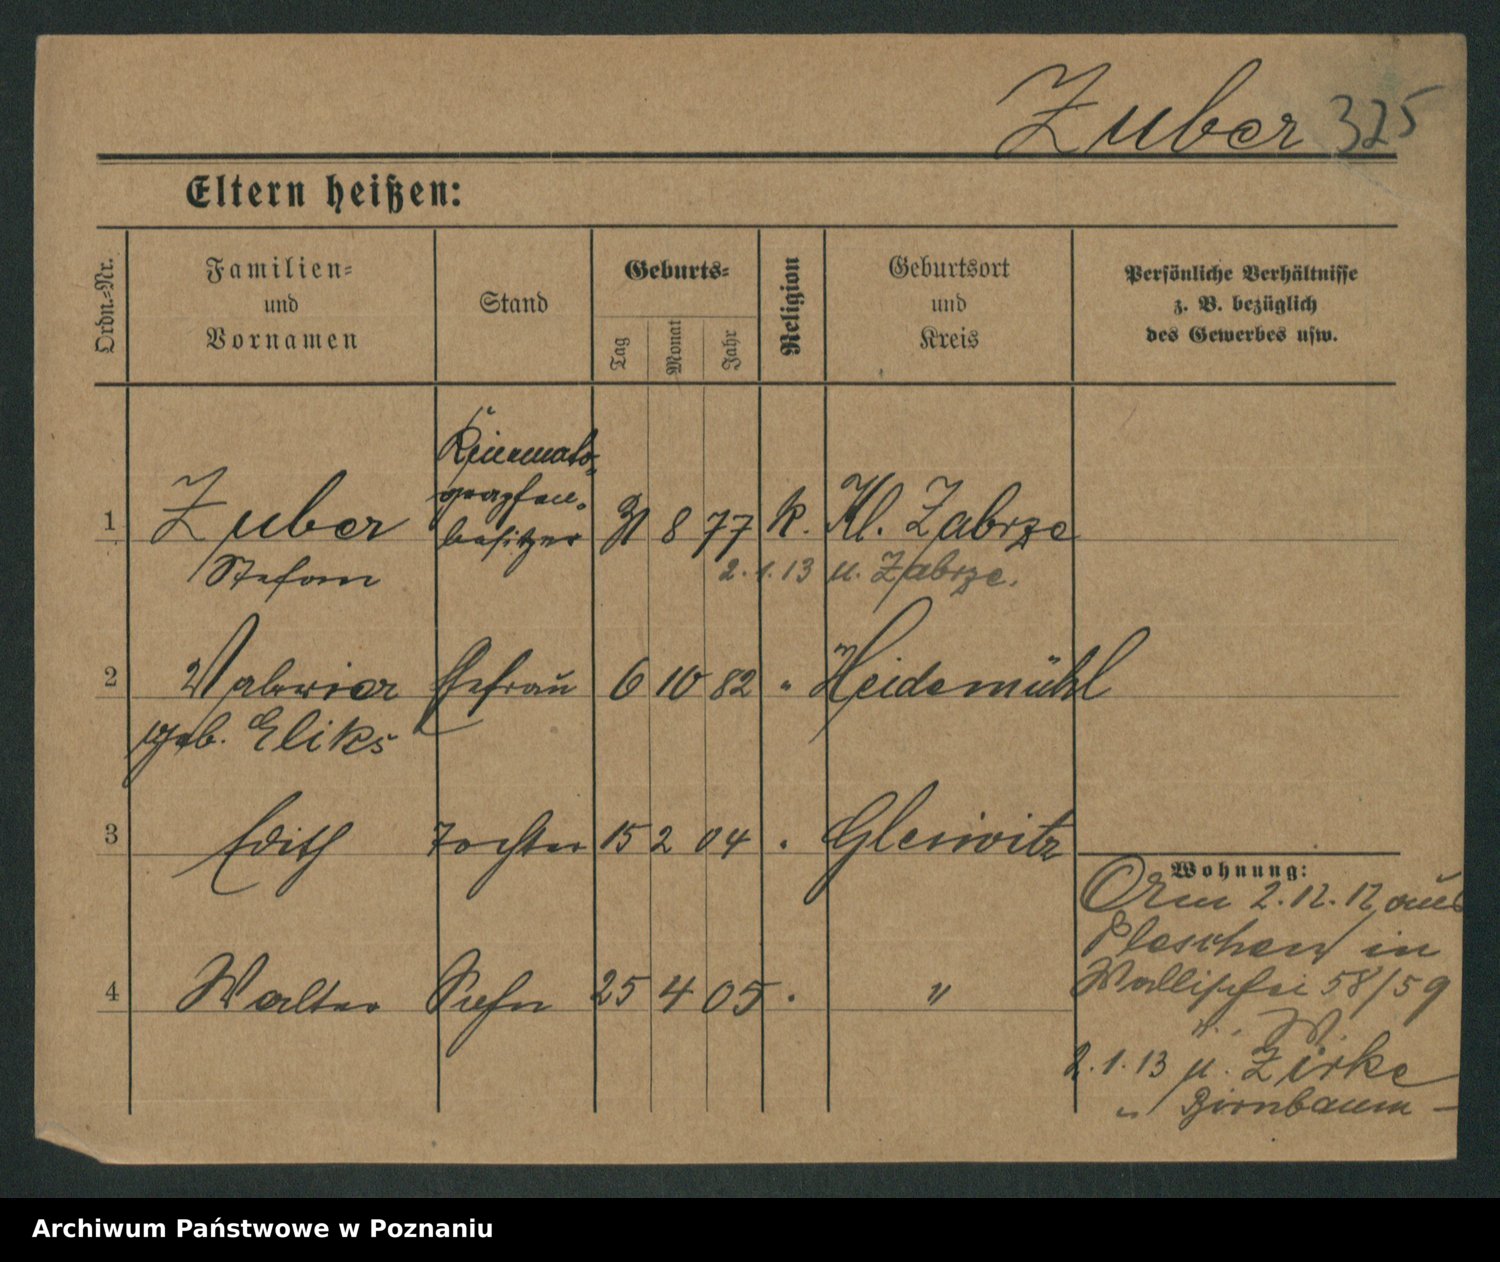 Zuber 325
Eltern heißen:
Ordn.-Nr.
Familien-
und
Vornamen
Stand
Geburts-
Tag
Monat
Jahr
Religion
Geburtsort
und
Kreis
Persönliche Verhältnisse
z. B. bezüglich
des Gewerbes usw.
Kinemato-
grafen-
1 Zuber besitzer 31 8 77 k. Kl. Zabrze
Stefan 2.1.13 u. Zabrze.
2 Ehefrau 6 10 82 " Heidemühl
geb. Eliks
3 Edith Tochter 15 2 04 " Gleiwitz
4 Walter Sohn 25 4 05 " "
Wohnung:
2.12.12 aus
Pleschen in
Wallischei 58/59
2.1.13 u. Zirke
" Birnbaum -
Archiwum Państwowe w Poznaniu